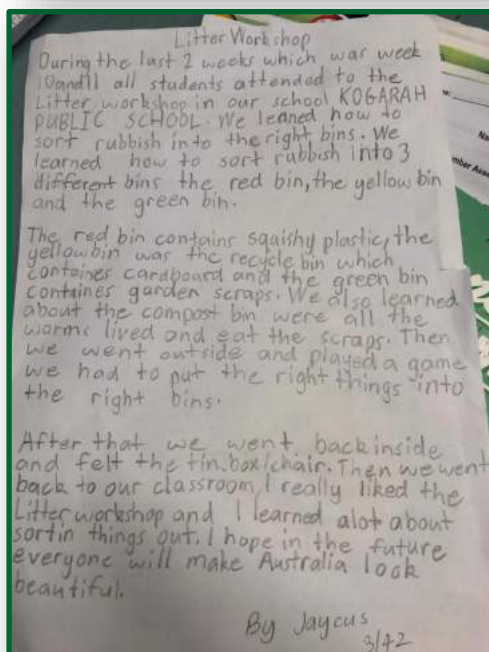 Litter Workshop
During the last 2 weeks which was week
10 and 11 all students attended to the
Litter workshop in our school KOGARAH
PUBLIC SCHOOL. We leaned how to
sort rubbish into the right bins. We
learned how to sort rubbish into 3
different bins the red bin, the yellow bin
and the green bin.
The red bin contains squishy plastic, the
yellow bin was the recycle bin which
containes cardboard and the green bin
containes garden scraps. We also learned
about the compost bin were all the
worms lived and eat the scraps. Then
we went outside and played a game
we had to put the right things into
the right bins.
After that we went back inside
and felt the tin.box/chair. Then we went
back to our classroom, I really liked the
Litter workshop and I learned alot about
sortin things out. I hope in the future
everyone will make Australia look
beautiful.
By Jaycus
3/42
Na
mber Asse